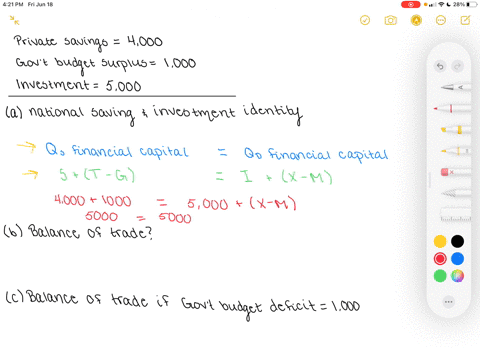 4:21 PM Fri Jun 18
28%
Private savings = 4,000
Gov't budget surplus = 1,000
Investment = 5,000
(a) national saving & investment identity
→ Qs financial capital = QD financial capital
→ S + (T-G) = I + (X-M)
4,000 + 1000 = 5,000 + (X-M)
5000 = 5000
(b) Balance of trade?
(c) Balance of trade if Gov't budget deficit = 1,000